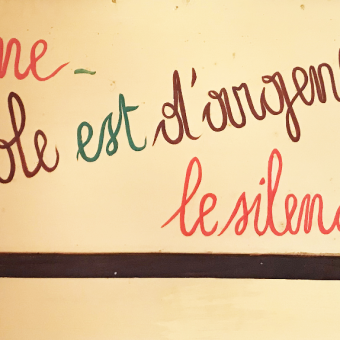 ne -
ole est d'argen
le silenc